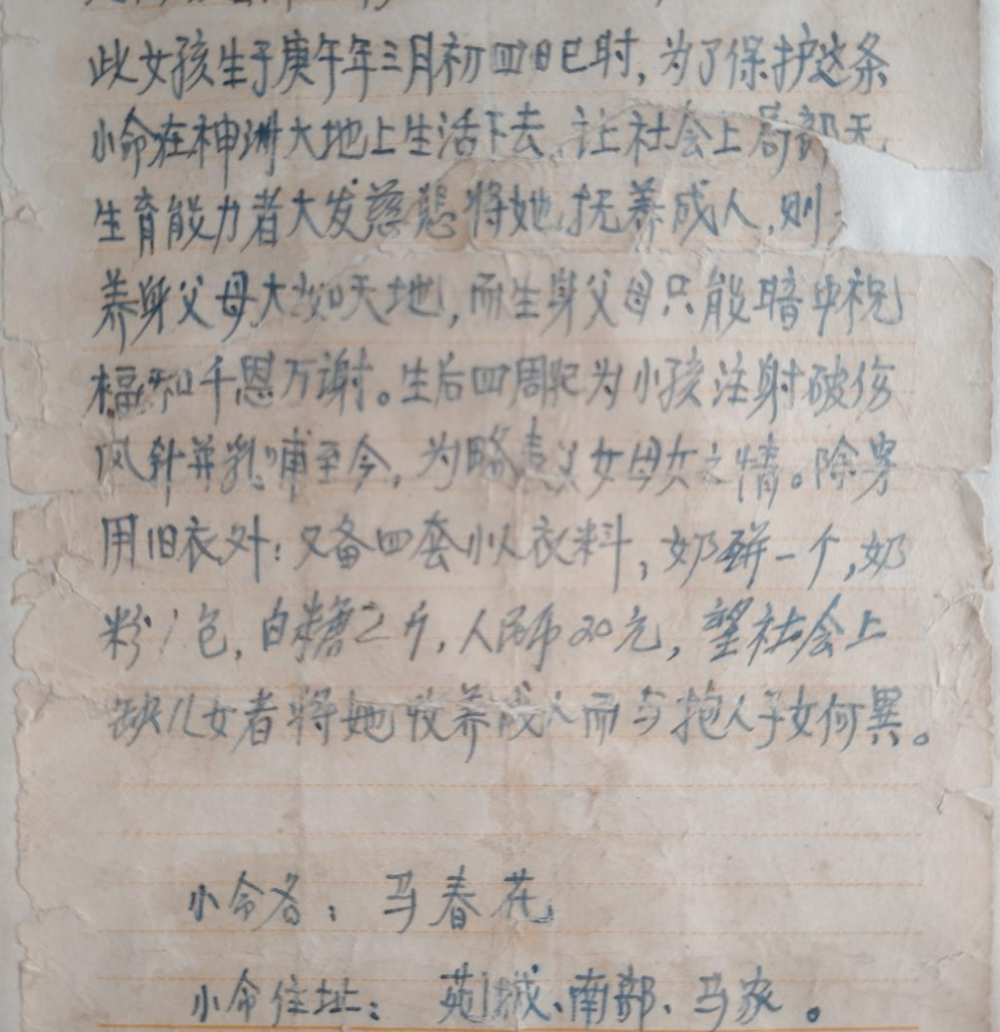 此女孩生于庚午年三月初四日巳时,为了保护这条
小命在神洲大地上生活下去,让社会上局部无
生育能力者大发慈悲将她抚养成人,则
养身父母大如天地,而生身父母只能暗中祝
福和千恩万谢。生后四周既为小孩注射破伤
风针并乳哺至今,为略表父女母女之情。除穿
用旧衣外:又备四套小人衣料,奶瓶一个,奶
粉1包,白糖2斤,人民币20元,望社会上
缺儿女者将她收养成人而与抱人子女何異。
小命名:马春花
小命住址:苑城、南部、马家。